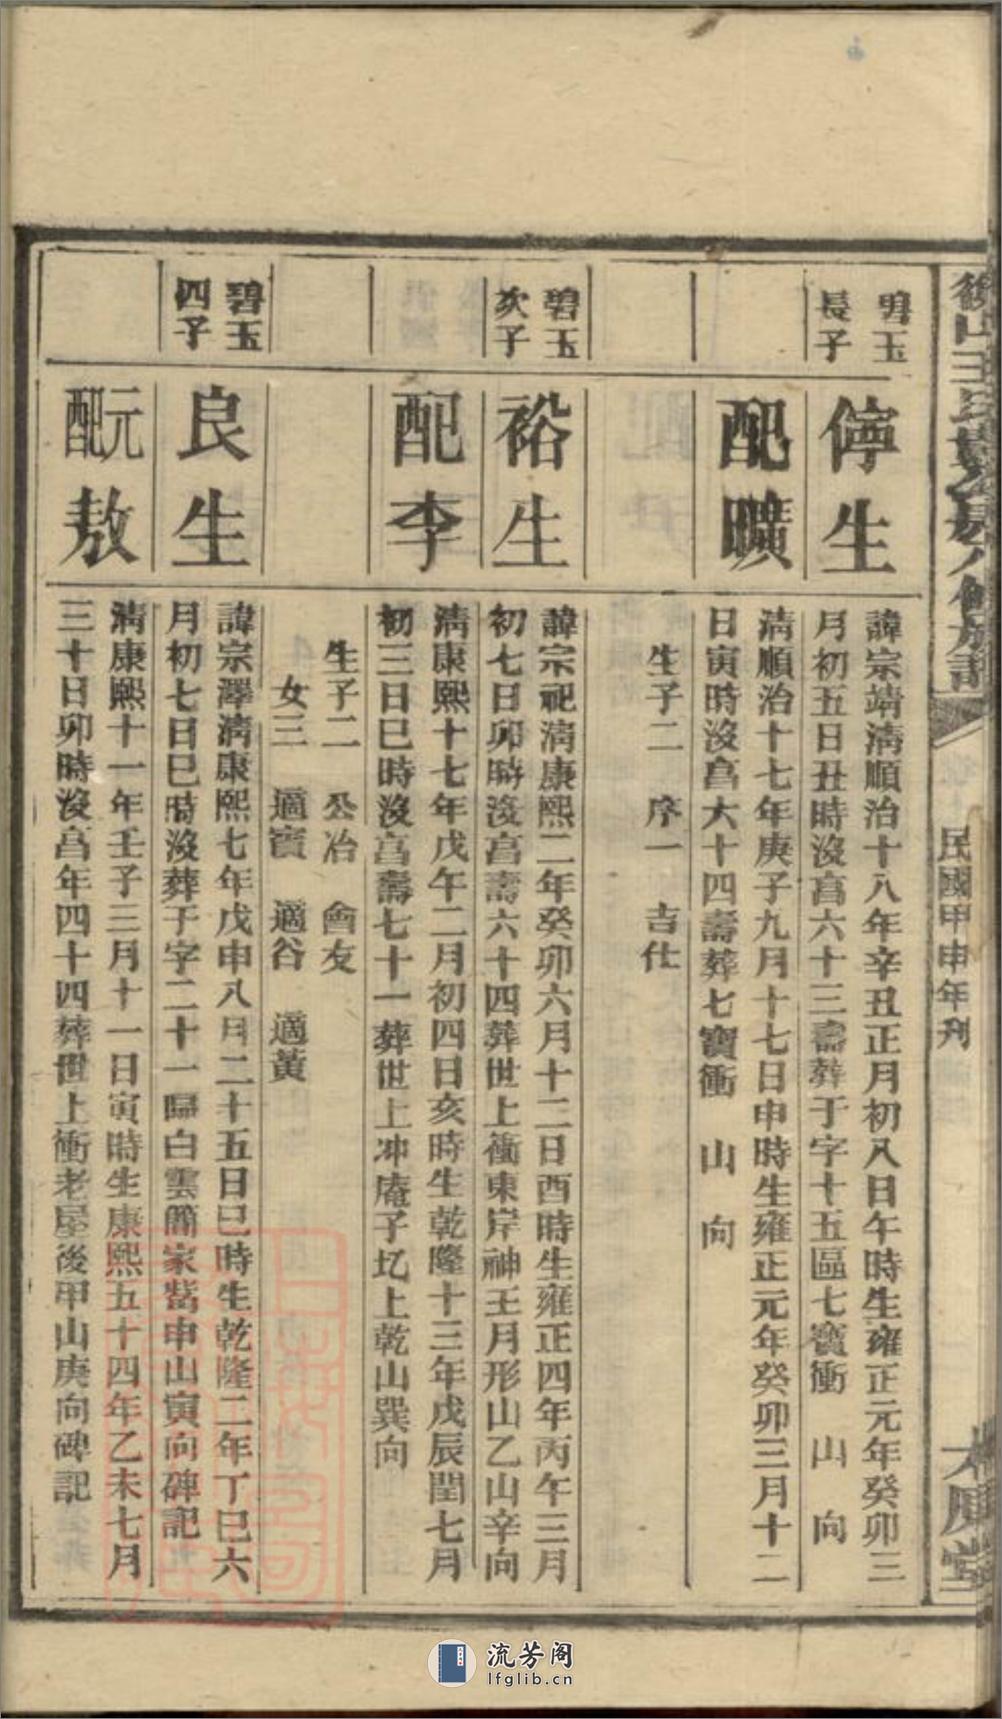 民國甲申年刊
碧玉
長子
停生
諱宗靖淸順治十八年辛丑正月初八日午時生雍正元年癸卯三
月初五日丑時沒享六十三壽葬于字十五區七寶衝　山　向
配曠
淸順治十七年庚子九月十七日申時生雍正元年癸卯三月十二
日寅時沒享六十四壽葬七寶衝　山　向
生子二　序一　吉仕
碧玉
次子
裕生
諱宗祀淸康熙二年癸卯六月十二日酉時生雍正四年丙午三月
初七日卯時沒享壽六十四葬世上衝東岸神王月形山乙山辛向
配李
淸康熙十七年戊午二月初四日亥時生乾隆十三年戊辰閏七月
初三日巳時沒享壽七十一葬世上冲庵子圪上乾山巽向
生子二　公冶　會友
女三　適賓　適谷　適黃
碧玉
四子
良生
諱宗澤淸康熙七年戊申八月二十五日巳時生乾隆二年丁巳六
月初七日巳時沒葬于字二十一歸白雲蕳家嵤申山寅向碑記
元配
敖
淸康熙十一年壬子三月十一日寅時生康熙五十四年乙未七月
三十日卯時沒享年四十四葬世上衝老屋後甲山庚向碑記
流芳阁
lfglib.cn